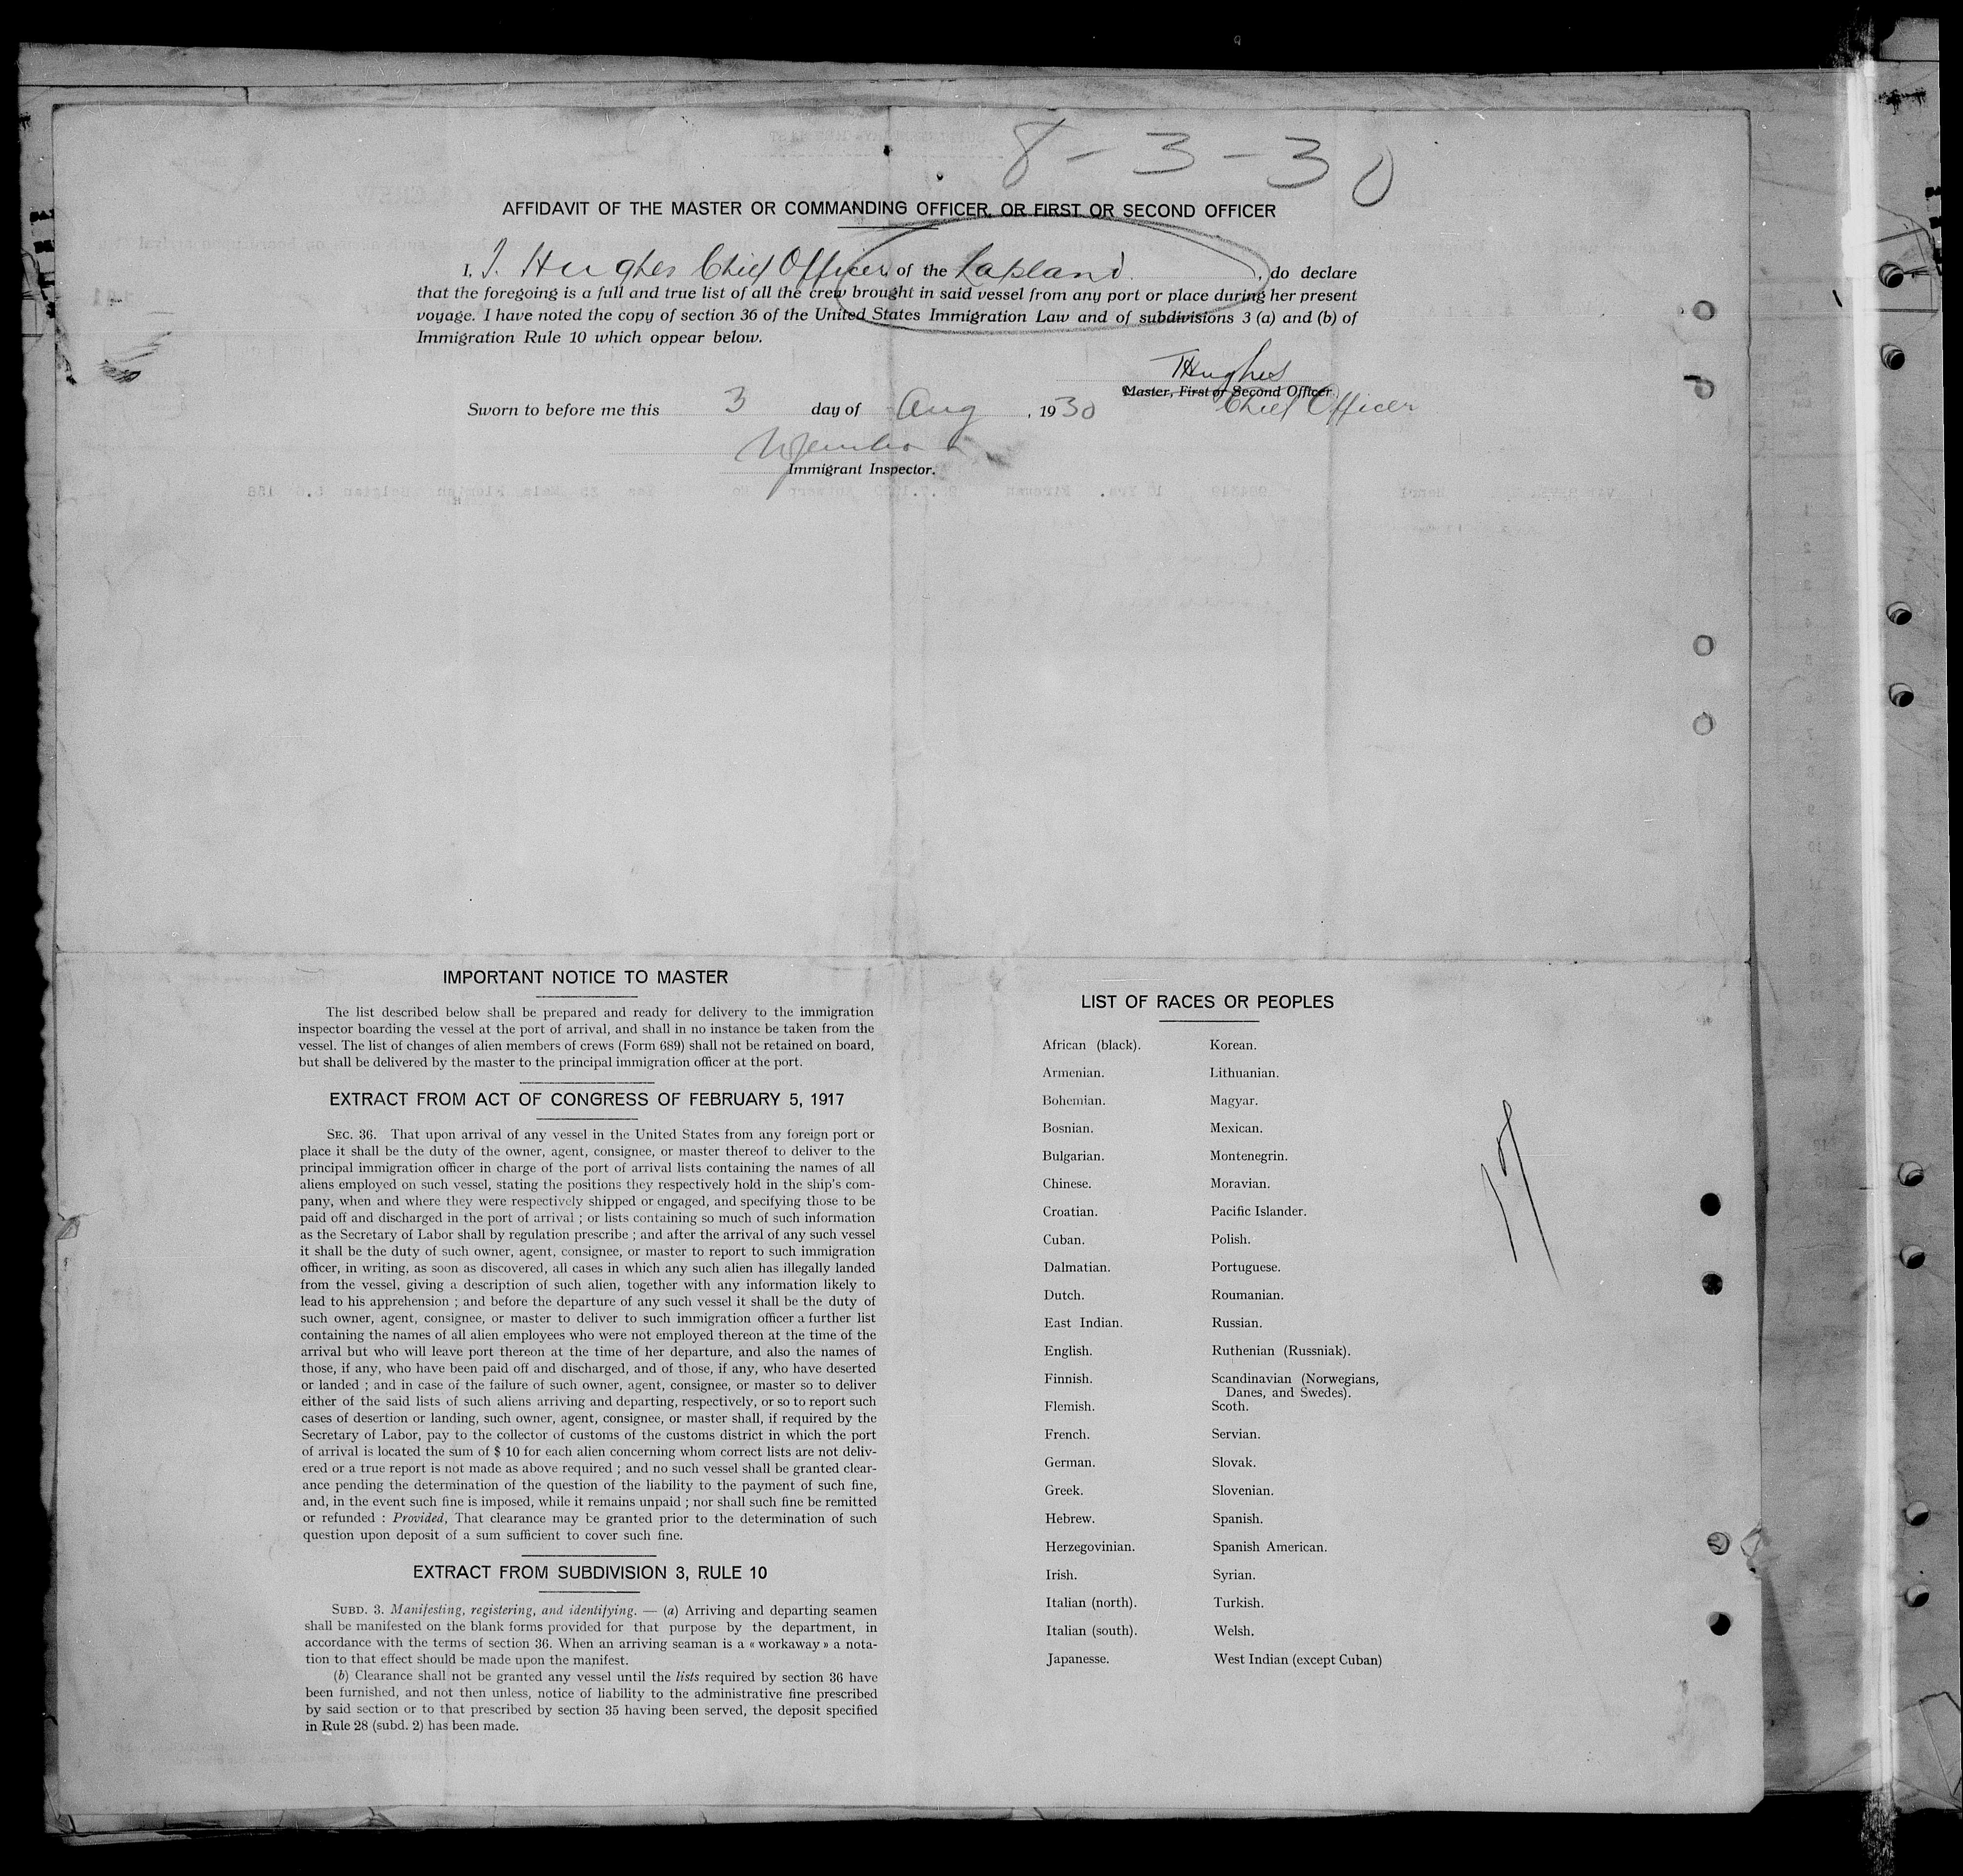 8-3-30
AFFIDAVIT OF THE MASTER OR COMMANDING OFFICER, OR FIRST OR SECOND OFFICER
I, T. Hughes Chief Officer of the Lapland, do declare
that the foregoing is a full and true list of all the crew brought in said vessel from any port or place during her present
voyage. I have noted the copy of section 36 of the United States Immigration Law and of subdivisions 3 (a) and (b) of
Immigration Rule 10 which oppear below.
THughes
Master, First or Second Officer
Chief Officer
Sworn to before me this 3 day of Aug, 1930
Immigrant Inspector.
IMPORTANT NOTICE TO MASTER
The list described below shall be prepared and ready for delivery to the immigration
inspector boarding the vessel at the port of arrival, and shall in no instance be taken from the
vessel. The list of changes of alien members of crews (Form 689) shall not be retained on board,
but shall be delivered by the master to the principal immigration officer at the port.
EXTRACT FROM ACT OF CONGRESS OF FEBRUARY 5, 1917
SEC. 36. That upon arrival of any vessel in the United States from any foreign port or
place it shall be the duty of the owner, agent, consignee, or master thereof to deliver to the
principal immigration officer in charge of the port of arrival lists containing the names of all
aliens employed on such vessel, stating the positions they respectively hold in the ship's com-
pany, when and where they were respectively shipped or engaged, and specifying those to be
paid off and discharged in the port of arrival ; or lists containing so much of such information
as the Secretary of Labor shall by regulation prescribe ; and after the arrival of any such vessel
it shall be the duty of such owner, agent, consignee, or master to report to such immigration
officer, in writing, as soon as discovered, all cases in which any such alien has illegally landed
from the vessel, giving a description of such alien, together with any information likely to
lead to his apprehension ; and before the departure of any such vessel it shall be the duty of
such owner, agent, consignee, or master to deliver to such immigration officer a further list
containing the names of all alien employees who were not employed thereon at the time of the
arrival but who will leave port thereon at the time of her departure, and also the names of
those, if any, who have been paid off and discharged, and of those, if any, who have deserted
or landed ; and in case of the failure of such owner, agent, consignee, or master so to deliver
either of the said lists of such aliens arriving and departing, respectively, or so to report such
cases of desertion or landing, such owner, agent, consignee, or master shall, if required by the
Secretary of Labor, pay to the collector of customs of the customs district in which the port
of arrival is located the sum of $ 10 for each alien concerning whom correct lists are not deliv-
ered or a true report is not made as above required ; and no such vessel shall be granted clear-
ance pending the determination of the question of the liability to the payment of such fine,
and, in the event such fine is imposed, while it remains unpaid ; nor shall such fine be remitted
or refunded : Provided, That clearance may be granted prior to the determination of such
question upon deposit of a sum sufficient to cover such fine.
EXTRACT FROM SUBDIVISION 3, RULE 10
SUBD. 3. Manifesting, registering, and identifying. — (a) Arriving and departing seamen
shall be manifested on the blank forms provided for that purpose by the department, in
accordance with the terms of section 36. When an arriving seaman is a « workaway » a nota-
tion to that effect should be made upon the manifest.
(b) Clearance shall not be granted any vessel until the lists required by section 36 have
been furnished, and not then unless, notice of liability to the administrative fine prescribed
by said section or to that prescribed by section 35 having been served, the deposit specified
in Rule 28 (subd. 2) has been made.
LIST OF RACES OR PEOPLES
African (black). Korean.
Armenian. Lithuanian.
Bohemian. Magyar.
Bosnian. Mexican.
Bulgarian. Montenegrin.
Chinese. Moravian.
Croatian. Pacific Islander.
Cuban. Polish.
Dalmatian. Portuguese.
Dutch. Roumanian.
East Indian. Russian.
English. Ruthenian (Russniak).
Finnish. Scandinavian (Norwegians,
Danes, and Swedes).
Flemish. Scoth.
French. Servian.
German. Slovak.
Greek. Slovenian.
Hebrew. Spanish.
Herzegovinian. Spanish American.
Irish. Syrian.
Italian (north). Turkish.
Italian (south). Welsh.
Japanesse. West Indian (except Cuban)